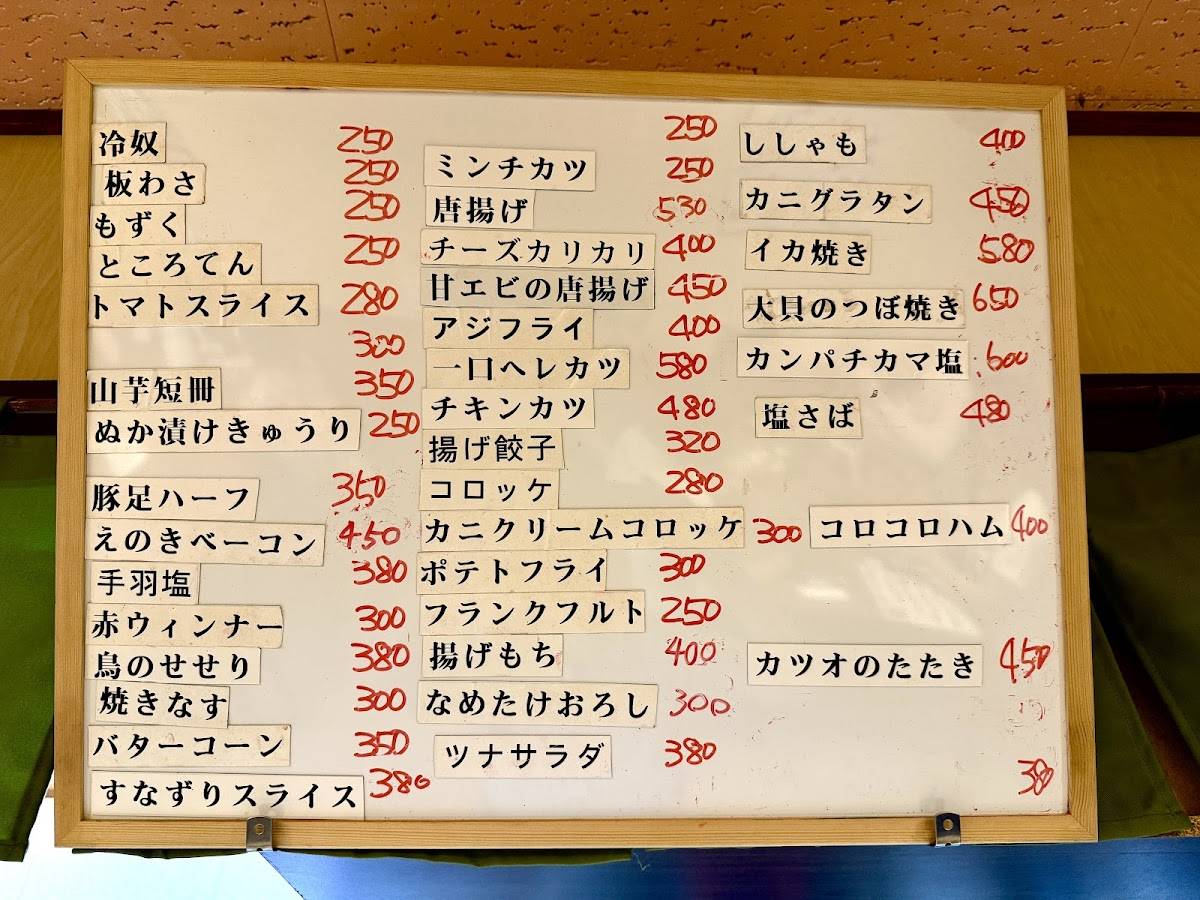 冷奴 250
板わさ 250
もずく 250
ところてん 250
トマトスライス 280
300
山芋短冊 350
ぬか漬けきゅうり 250
豚足ハーフ 350
えのきベーコン 450
手羽塩 380
赤ウィンナー 300
鳥のせせり 380
焼きなす 300
バターコーン 350
すなずりスライス 380
250
ミンチカツ 250
唐揚げ 530
チーズカリカリ 400
甘エビの唐揚げ 450
アジフライ 400
一口ヘレカツ 580
チキンカツ 480
揚げ餃子 320
コロッケ 280
カニクリームコロッケ 300
ポテトフライ 300
フランクフルト 250
揚げもち 400
なめたけおろし 300
ツナサラダ 380
ししゃも 400
カニグラタン 450
イカ焼き 580
大貝のつぼ焼き 650
カンパチカマ塩 600
塩さば 480
コロコロハム 400
カツオのたたき 450
380